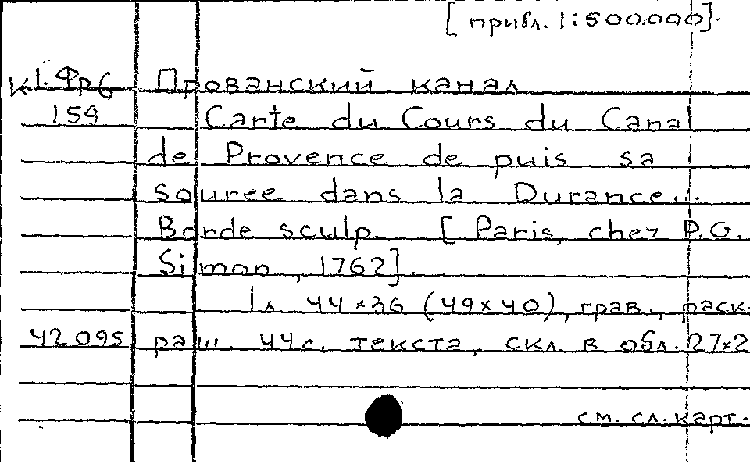 [прибл. 1:500.000].
К1.Фр6 Прованский канал
159 Carte du Cours du Canal
de Provence de puis sa
souree dans la Durance...
Borde sculp. [Paris, chez P.G.
Simon, 1762].
1л 44×36 (49×40), грав., раск-
42095 раш. 44с. текста, скл. в обл. 27×2
см. сл. карт.